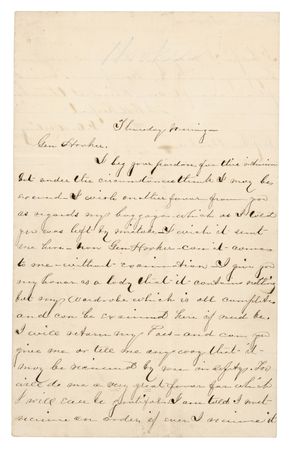 Thursday Morning
Gen Hooker.
I beg your pardon for this
but under the circumstances think I may be
I wish another favor from you
as regards my baggage which as I told
you was left by mistake I wish it sent
me here now Gen Hooker can it come
to me without examination I give you
my honor as a lady that it contains nothing
but my wardrobe which is all complete
and can be examined here if need be
I will return my Pass and can you
give me or tell me any way that it
may be received by me in safety. You
will do me a very great favor for which
I will ever be grateful. I am told I must
receive an order if ever I receive it